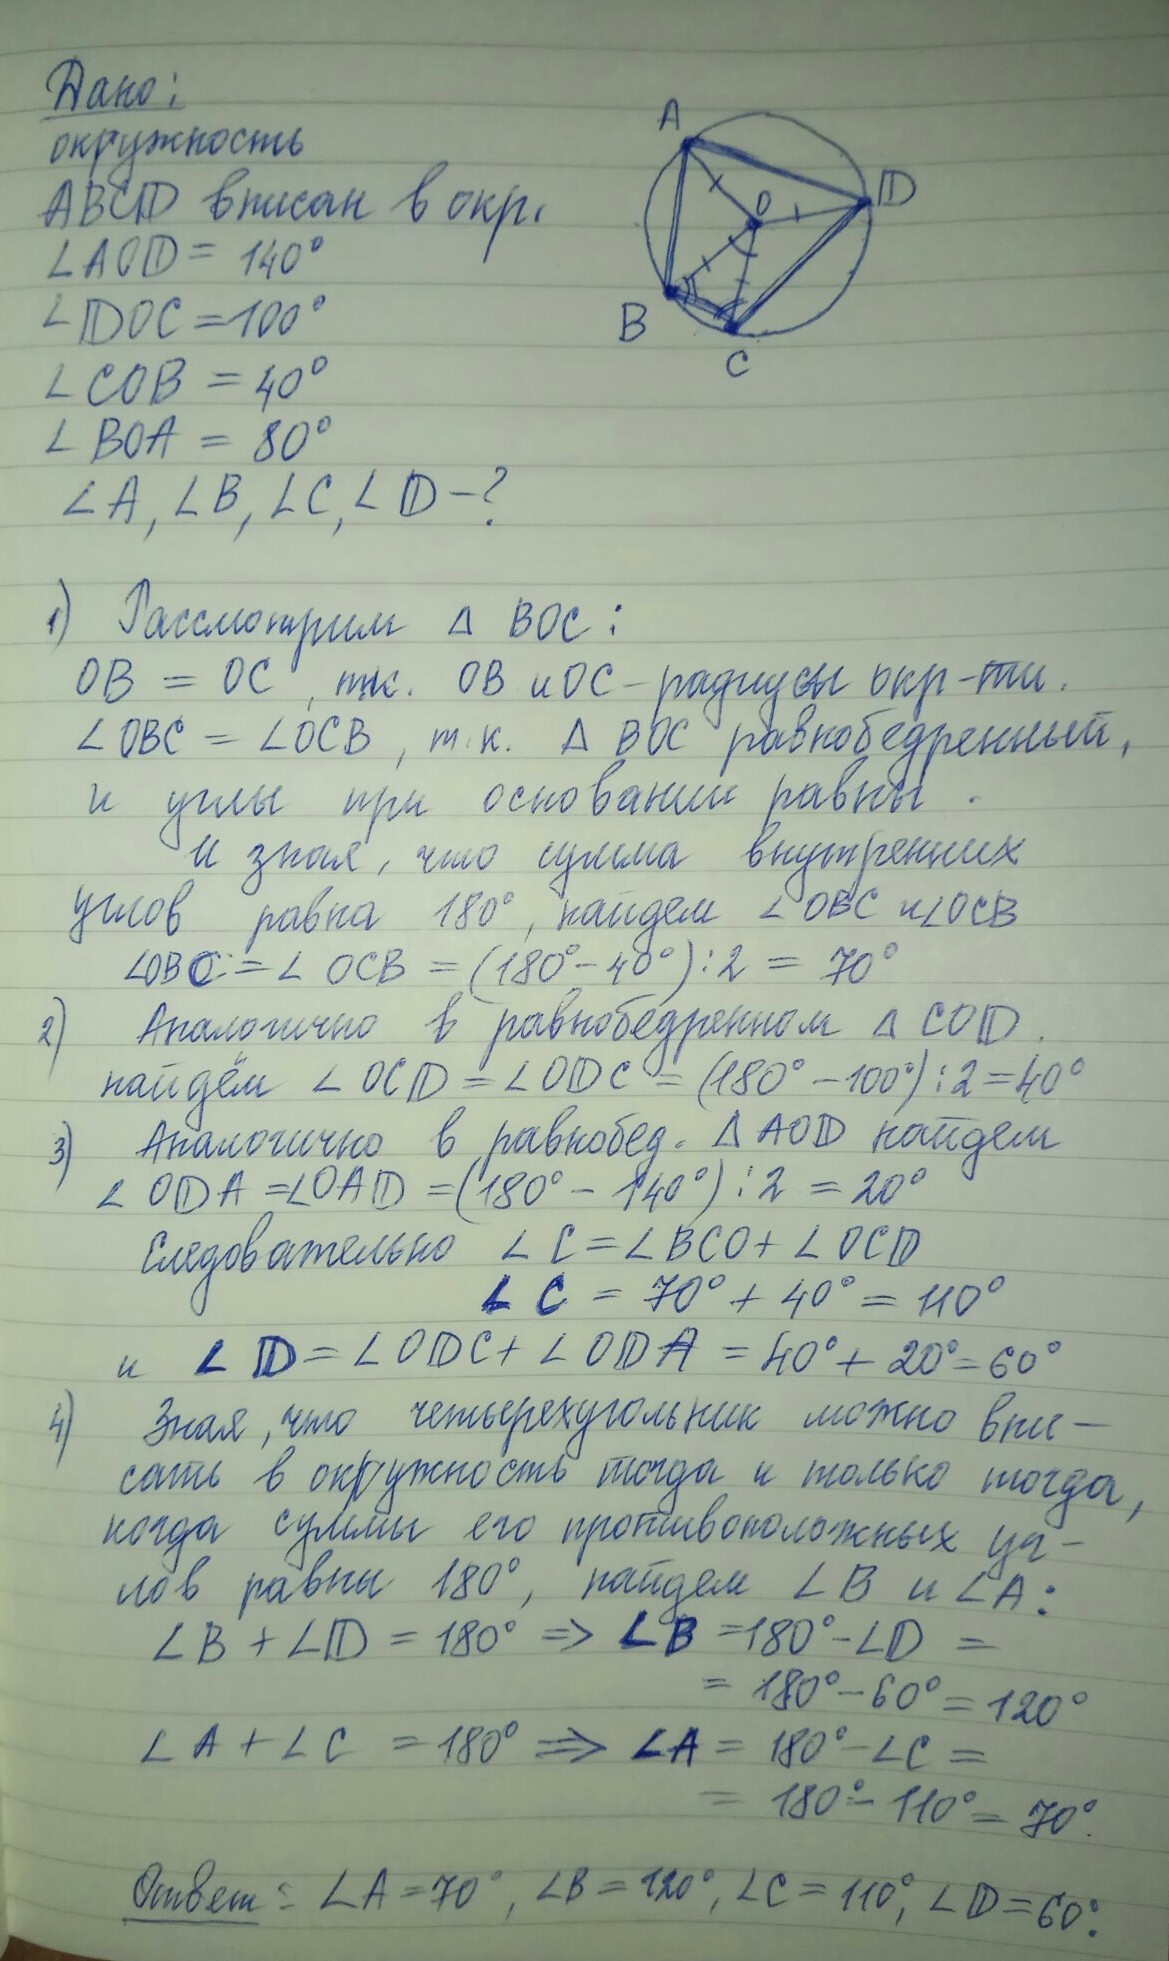 Дано:
окружность
ABCD вписан в окр.
∠AOD = 140°
∠DOC = 100°
∠COB = 40°
∠BOA = 80°
∠A, ∠B, ∠C, ∠D - ?
A
O
D
B
C
1) Рассмотрим △ BOC:
OB = OC, т.к. OB и OC - радиусы окр-ти.
∠OBC = ∠OCB, т.к. △ BOC равнобедренный,
и углы при основании равны.
И зная, что сумма внутренних
углов равна 180°, найдем ∠OBC и ∠OCB
∠OBC = ∠OCB = (180° - 40°):2 = 70°
2) Аналогично в равнобедренном △ COD
найдём ∠OCD = ∠ODC = (180° - 100°):2 = 40°
3) Аналогично в равнобед. △ AOD найдем
∠ODA = ∠OAD = (180° - 140°):2 = 20°
Следовательно ∠C = ∠BCO + ∠OCD
∠C = 70° + 40° = 110°
и ∠D = ∠ODC + ∠ODA = 40° + 20° = 60°
4) Зная, что четырехугольник можно впи-
сать в окружность тогда и только тогда,
когда суммы его противоположных уг-
лов равны 180°, найдем ∠B и ∠A:
∠B + ∠D = 180° => ∠B = 180° - ∠D =
= 180° - 60° = 120°
∠A + ∠C = 180° => ∠A = 180° - ∠C =
= 180° - 110° = 70°.
Ответ: ∠A = 70°, ∠B = 120°, ∠C = 110°, ∠D = 60°.